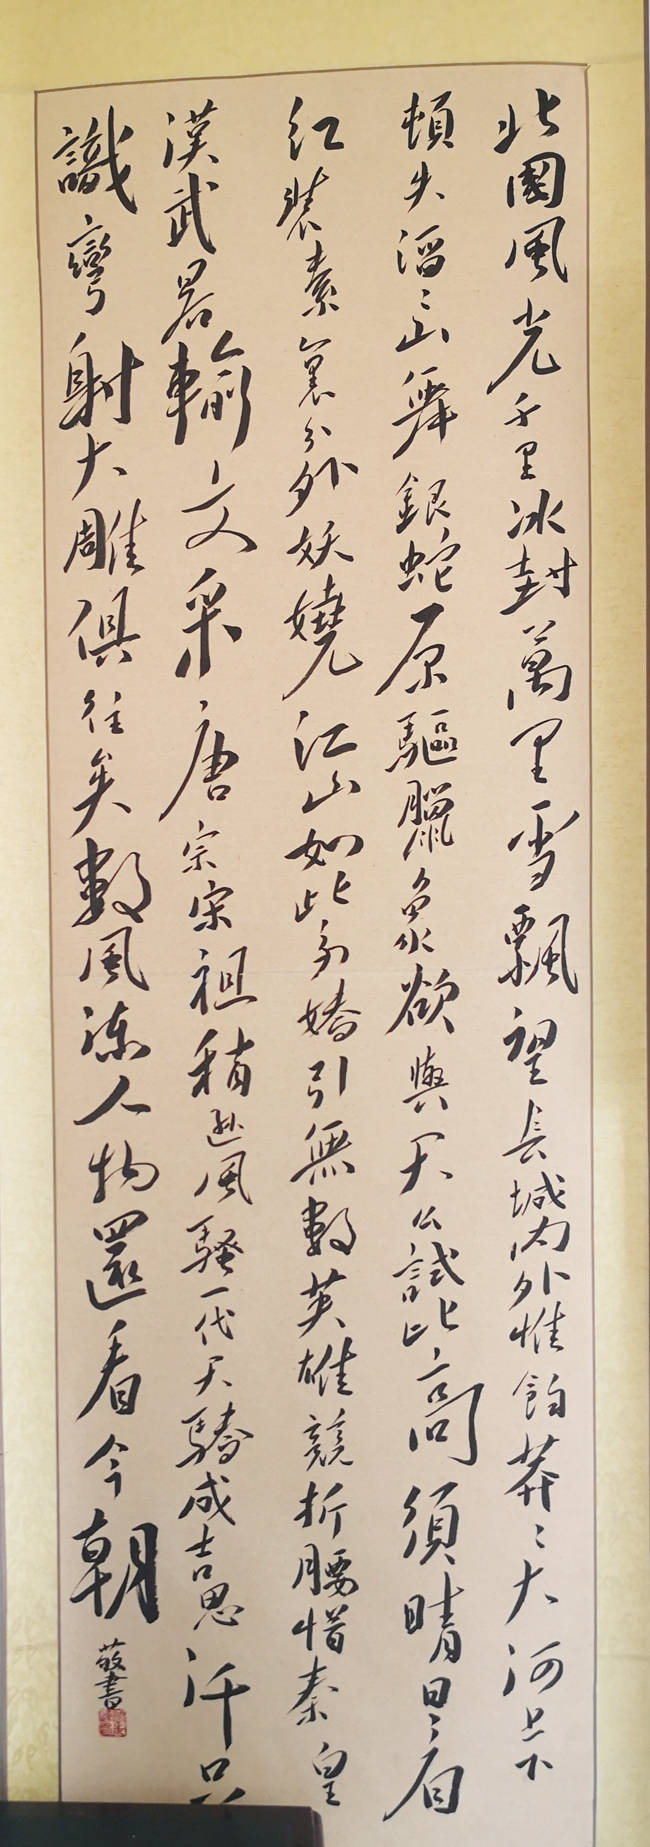 北國風光千里冰封萬里雪飄望長城內外惟餘莽〻大河上下
頓失滔〻山舞銀蛇原驅臘象欲與天公試比高須晴日看
紅裝素裹分外妖嬈江山如此多嬌引無數英雄競折腰惜秦皇
漢武畧輸文采唐宗宋祖稍遜風騷一代天驕成吉思汗只
識彎射大雕俱往矣數風流人物還看今朝
敬書